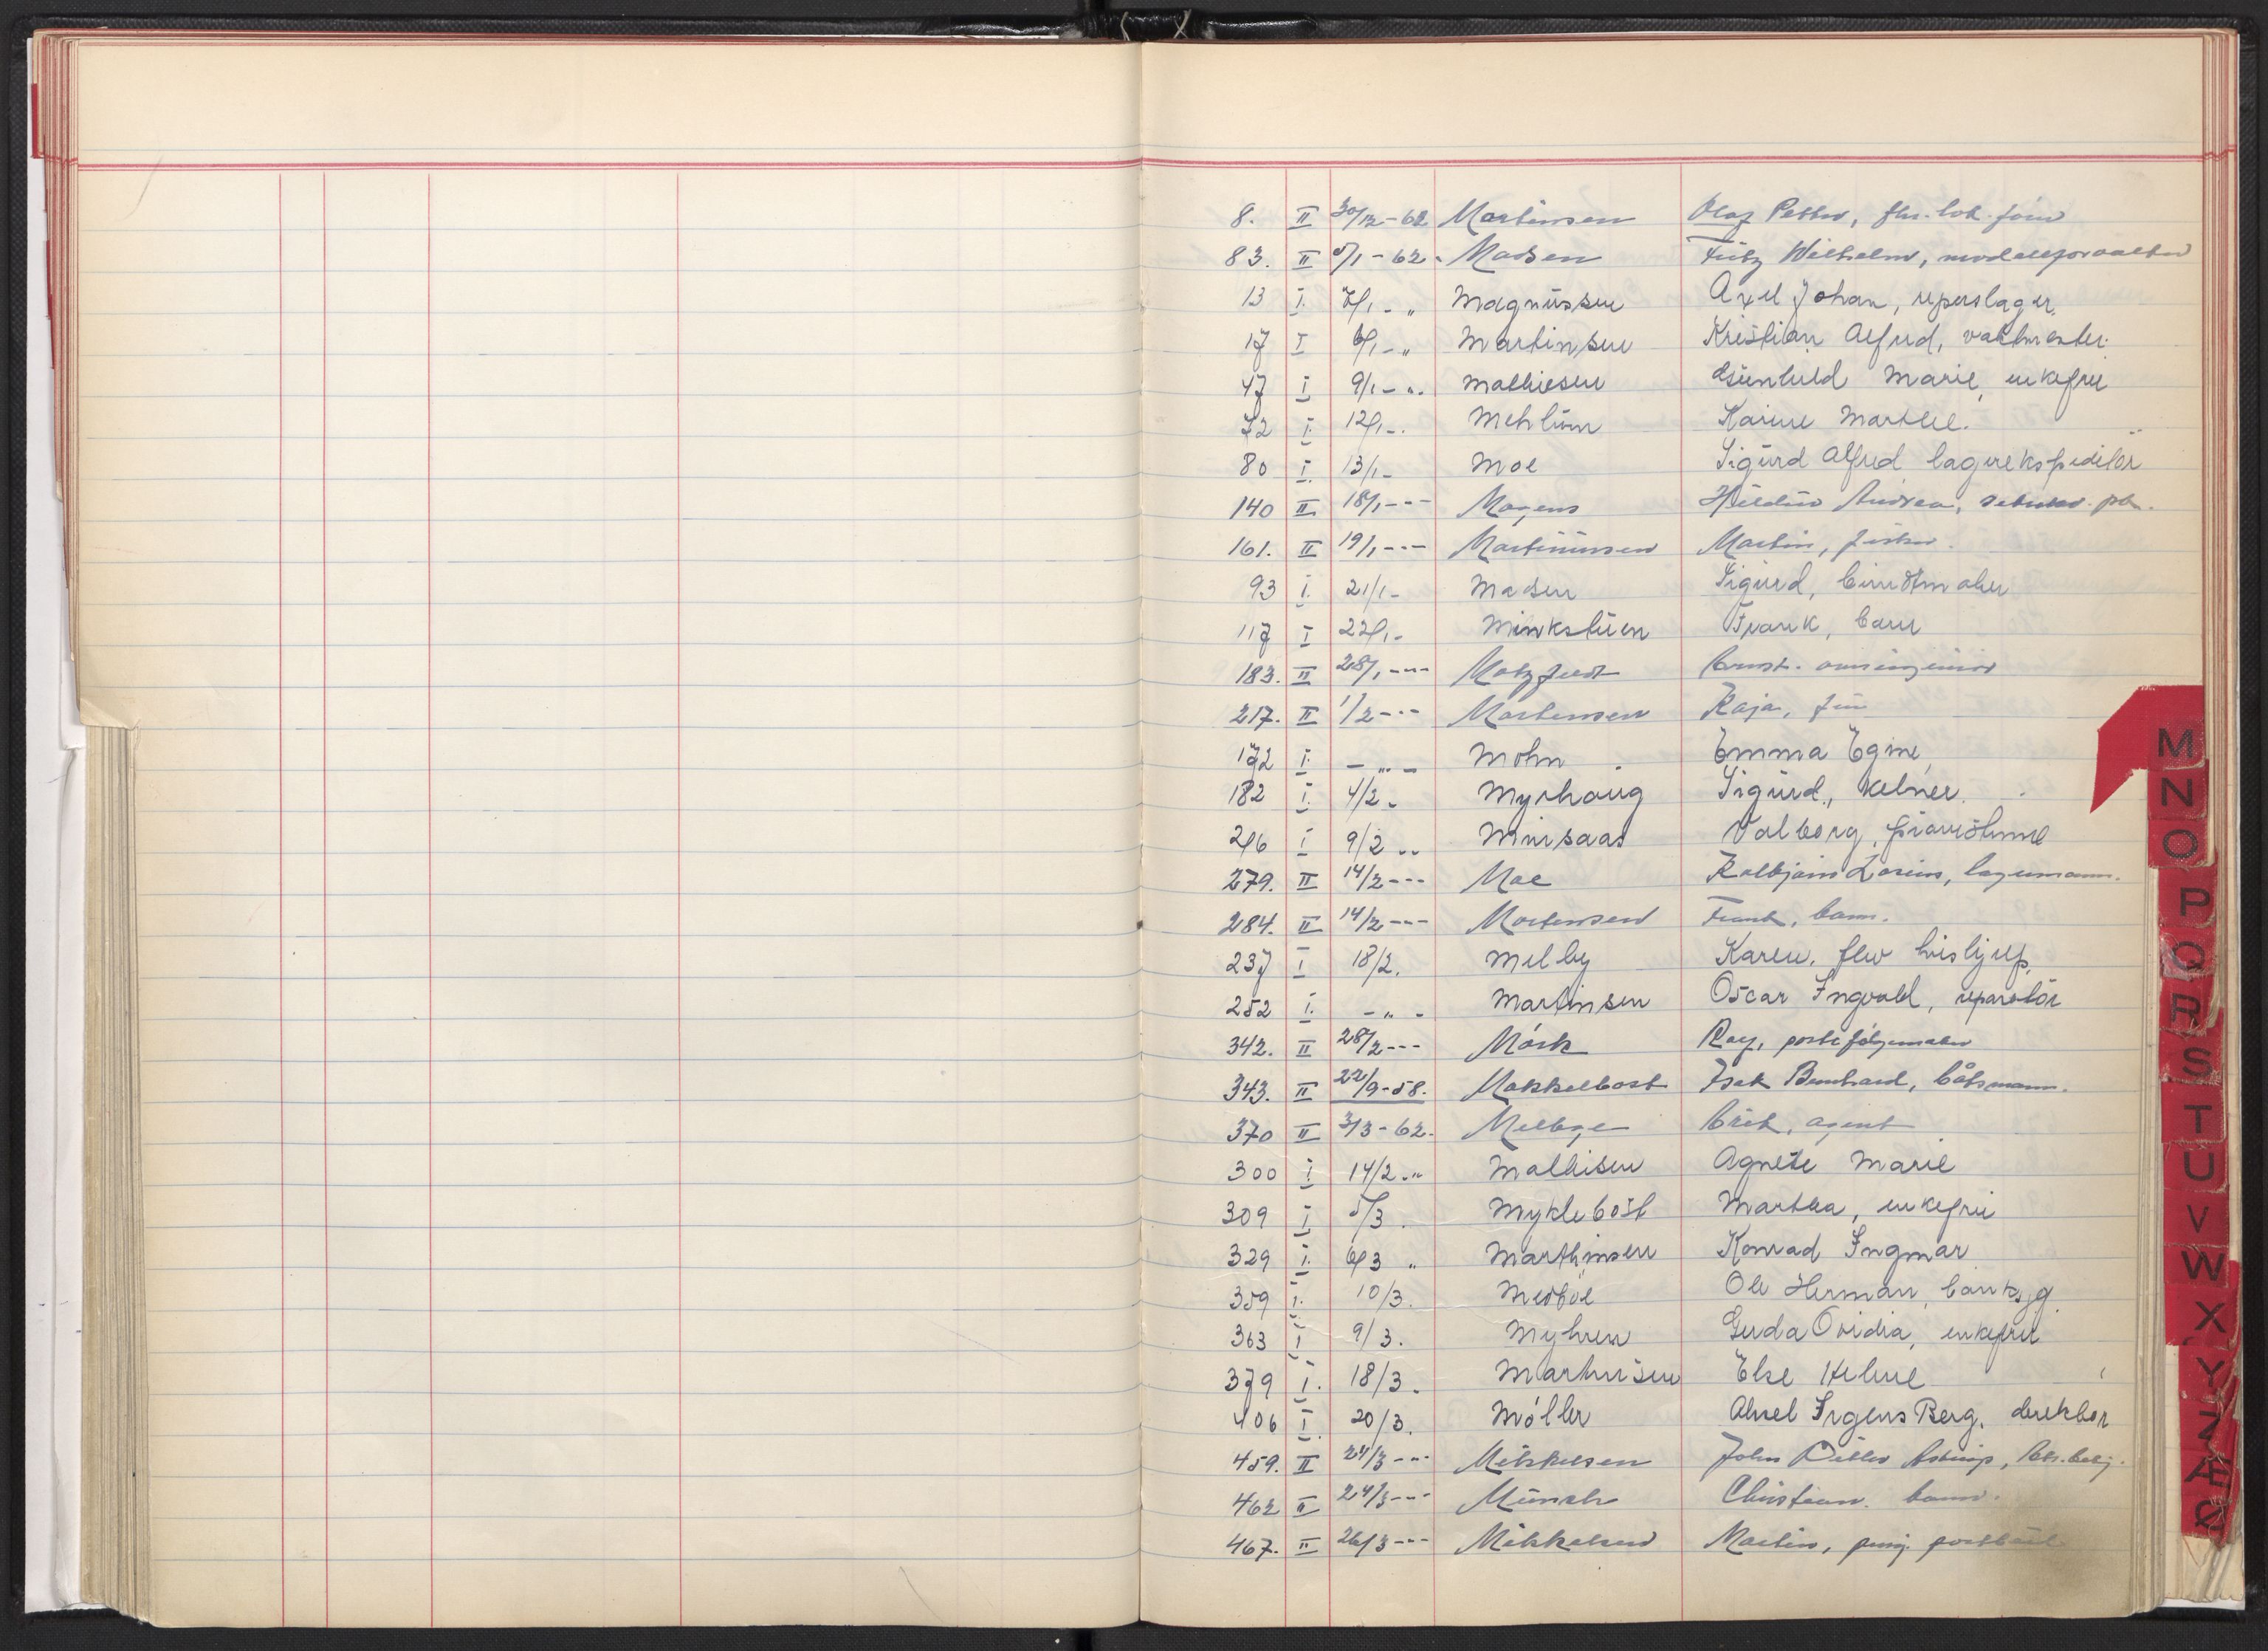 8. II 30/12-62 Martinsen Olaf Petter,
83. II 5/1-62. Madsen Fritz Wilhelm, modellforvalter
13 I. 7/1 - „ Magnussen Axel Johan, reperslager.
17 I 6/1 - „ Martinsen Kristian Alfred, vaktmester.
47 I 9/1 - „. Mathiesen Gunhild Marie, enkefru
72 I. 12/1 -. Mehlum Karine Marthe.
80 I. 13/1 - Moe Sigurd Alfred lagerekspeditör
140 II 18/1 - „ - Magens Andrea,
161. II 19/1 - „ - Martinussen Martin, fisker.
93 I. 21/1 - Madsen Sigurd, bundtmaker
117 I 22/1. - Minkstuen Frank, barn
183. II 28/1. - „ - Motzfeldt Ernst. avd.ingeniör
217. II 1/2 - „ - Mortensen Kaja, fru
172 I. - „ - Mohn Emma Egine,
182 I. 4/2. Myrhaug Sigurd, kelner.
216 I 9/2 „ Minsaas Valborg,
279. II 14/2 - „ - Moe Kolbjørn Lorein, lagermann.
284. II 14/2 - „ - Mortensen Frank, barn.
237 I 18/2. Melby Karen. flw hushjelp.
252 I. - „ - Martinsen Oscar Ingvald, reparatör
342. II 28/2 - „ - Mörk Roy,
343. II 22/9-58. Makkelbost Isak Bernhard, båtsmann.
370 II 3/3-62. Melbye Erik, agent
300 I 14/2 „ Mathisen Agnete Marie
309 I 5/3. Myklebost Martha, enkefru
329 I. 6/3 „ Marthinsen Konrad Ingmar
359 I. 10/3. Medböe Ole Herman, banksj.
363 I 9/3. Myhren Gerda Ovidia, enkefru
379 I. 18/3. Marthinsen Else Helene
406 I. 20/3. Möller Aksel Irgens Berg. direktör
459. II 24/3 - „ - Mikkelsen John Ditlev Astrup,
462 II 24/3 - „ - Münch Christian. barn.
467. II 26/3 - „ - Mikkelsen Martin, pensj.
M
N
O
P
Q
R
S
T
U
V
W
X
Y
Z
Æ
Ø